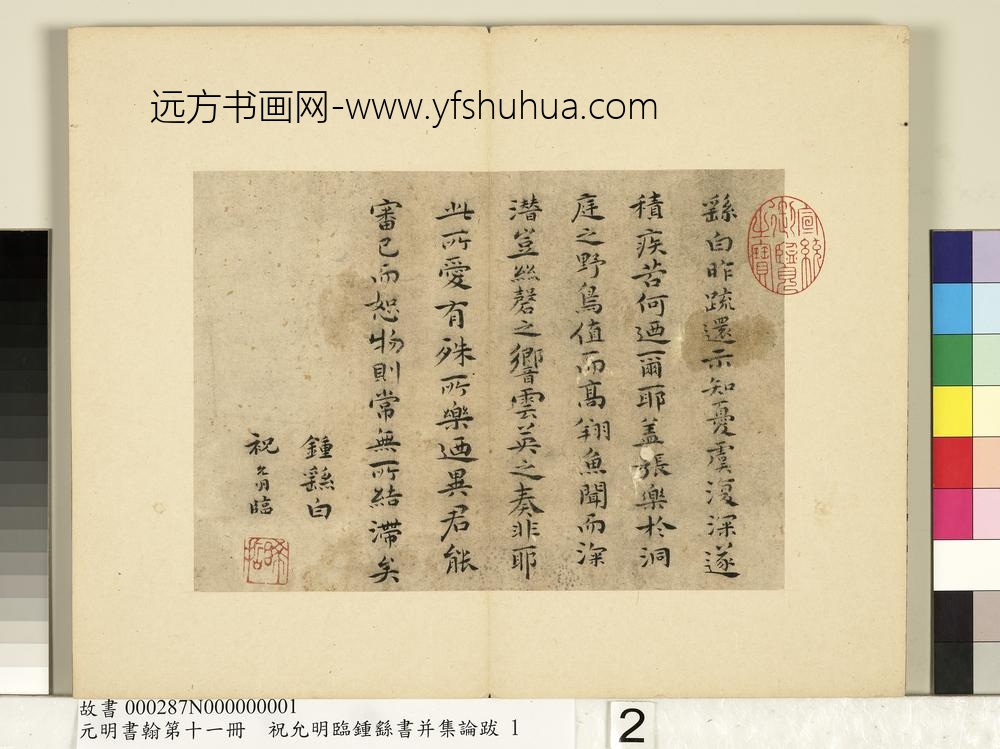 远方书画网-www.yfshuhua.com
繇白昨疏還示知憂虞復深遂
積疾苦何迺爾耶蓋張樂於洞
庭之野鳥值而高翔魚聞而深
潛豈絲磬之響雲英之奏非耶
此所愛有殊所樂迺異君能
審己而恕物則常無所結滯矣
鍾繇白
祝允明臨
宣統御覽之寶
故書 000287N000000001
元明書翰第十一冊 祝允明臨鍾繇書并集論跋 1
2